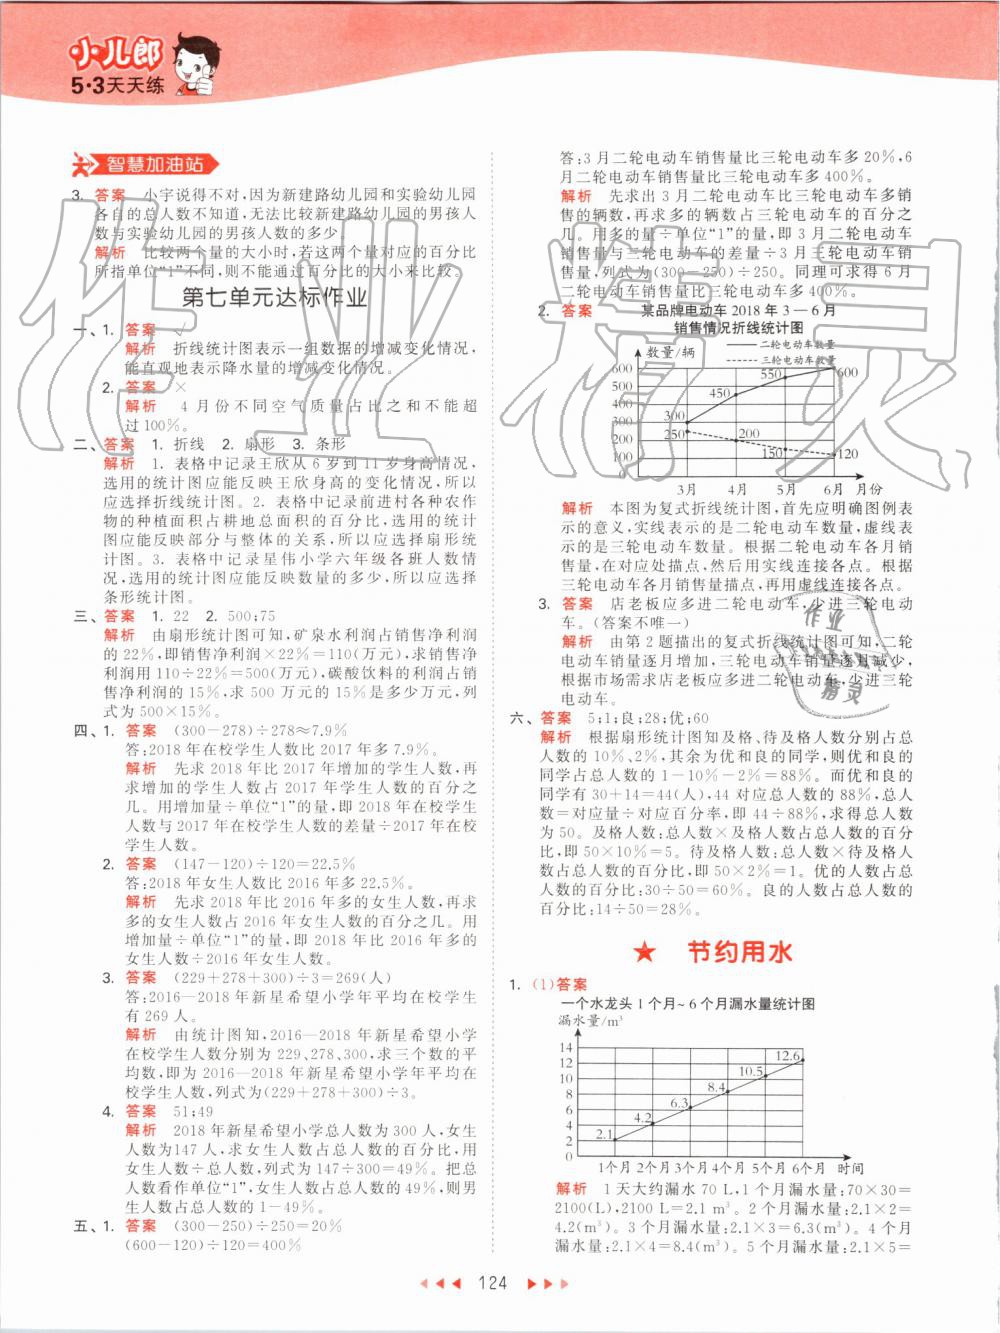 小儿郎
5·3天天练
智慧加油站
3. 答案 小宇说得不对,因为新建路幼儿园和实验幼儿园
各自的总人数不知道,无法比较新建路幼儿园的男孩人
数与实验幼儿园的男孩人数的多少。
解析 比较两个量的大小时,若这两个量对应的百分比
所指单位“1”不同,则不能通过百分比的大小来比较。
第七单元达标作业
一、1. 答案 √
解析 折线统计图表示一组数据的增减变化情况,
能直观地表示降水量的增减变化情况。
2. 答案 ×
解析 4月份不同空气质量占比之和不能超
过100%。
二、答案 1. 折线 2. 扇形 3. 条形
解析 1. 表格中记录王欣从6岁到11岁身高情况,
选用的统计图应能反映王欣身高的变化情况,所以
应选择折线统计图。2. 表格中记录前进村各种农作
物的种植面积占耕地总面积的百分比,选用的统计
图应能反映部分与整体的关系,所以应选择扇形统
计图。3. 表格中记录星伟小学六年级各班人数情
况,选用的统计图应能反映数量的多少,所以应选择
条形统计图。
三、答案 1. 22 2. 500;75
解析 由扇形统计图可知,矿泉水利润占销售净利润
的22%,即销售净利润×22%=110(万元),求销售净
利润用110÷22%=500(万元),碳酸饮料的利润占销
售净利润的15%,求500万元的15%是多少万元,列
式为500×15%。
四、1. 答案 (300-278)÷278≈7.9%
答:2018年在校学生人数比2017年多7.9%。
解析 先求2018年比2017年增加的学生人数,再
求增加的学生人数占2017年学生人数的百分之
几。用增加量÷单位“1”的量,即2018年在校学生
人数与2017年在校学生人数的差量÷2017年在校
学生人数。
2. 答案 (147-120)÷120=22.5%
答:2018年女生人数比2016年多22.5%。
解析 先求2018年比2016年多的女生人数,再求
多的女生人数占2016年女生人数的百分之几。用
增加量÷单位“1”的量,即2018年比2016年多的
女生人数÷2016年女生人数。
3. 答案 (229+278+300)÷3=269(人)
答:2016—2018年新星希望小学年平均在校学生
有269人。
解析 由统计图知,2016—2018年新星希望小学
在校学生人数分别为229、278、300,求三个数的平
均数,即为2016—2018年新星希望小学年平均在
校学生人数,列式为(229+278+300)÷3。
4. 答案 51;49
解析 2018年新星希望小学总人数为300人,女生
人数为147人,求女生人数占总人数的百分比,用
女生人数÷总人数,列式为147÷300=49%。把总
人数看作单位“1”,女生人数占总人数的49%,则男
生人数占总人数的1-49%。
五、1. 答案 (300-250)÷250=20%
(600-120)÷120=400%
答:3月二轮电动车销售量比三轮电动车多20%,6
月二轮电动车销售量比三轮电动车多400%。
解析 先求出3月二轮电动车比三轮电动车多销
售的辆数,再求多的辆数占三轮电动车的百分之
几。用多的量÷单位“1”的量,即3月二轮电动车
销售量与三轮电动车的差量÷3月三轮电动车销
售量,列式为(300-250)÷250。同理可求得6月
二轮电动车销售量比三轮电动车多400%。
2. 答案 某品牌电动车2018年3—6月
销售情况折线统计图
二轮电动车数量
三轮电动车数量
数量/辆
600
500
400
300
200
100
0
300
450
550
600
250
200
150
120
3月 4月 5月 6月 月份
解析 本图为复式折线统计图,首先应明确图例表
示的意义,实线表示的是二轮电动车数量,虚线表
示的是三轮电动车数量。根据二轮电动车各月销
售量,在对应处描点,然后用实线连接各点。根据
三轮电动车各月销售量描点,再用虚线连接各点。
3. 答案 店老板应多进二轮电动车,少进三轮电动
车。(答案不唯一)
解析 由第2题描出的复式折线统计图可知,二轮
电动车销量逐月增加,三轮电动车销量逐月减少,
根据市场需求店老板应多进二轮电动车,少进三轮
电动车。
六、答案 5;1;良;28;优;60
解析 根据扇形统计图知及格、待及格人数分别占总
人数的10%、2%,其余为优和良的同学,则优和良的
同学占总人数的1-10%-2%=88%。而优和良的
同学有30+14=44(人),44对应总人数的88%,总人
数=对应量÷对应百分率,即44÷88%,求得总人数
为50。及格人数:总人数×及格人数占总人数的百分
比,即50×10%=5。待及格人数:总人数×待及格人
数占总人数的百分比,即50×2%=1。优的人数占总
人数的百分比:30÷50=60%。良的人数占总人数的
百分比:14÷50=28%。
★ 节约用水
1. (1)答案
一个水龙头1个月~6个月漏水量统计图
漏水量/m³
14
12
10
8
6
4
2
0
2.1
4.2
6.3
8.4
10.5
12.6
1个月 2个月 3个月 4个月 5个月 6个月 时间
解析 1天大约漏水70 L,1个月漏水量:70×30=
2100(L),2100 L=2.1 m³。2个月漏水量:2.1×2=
4.2(m³)。3个月漏水量:2.1×3=6.3(m³)。4个月
漏水量:2.1×4=8.4(m³)。5个月漏水量:2.1×5=
124
作业精灵
作业
精灵